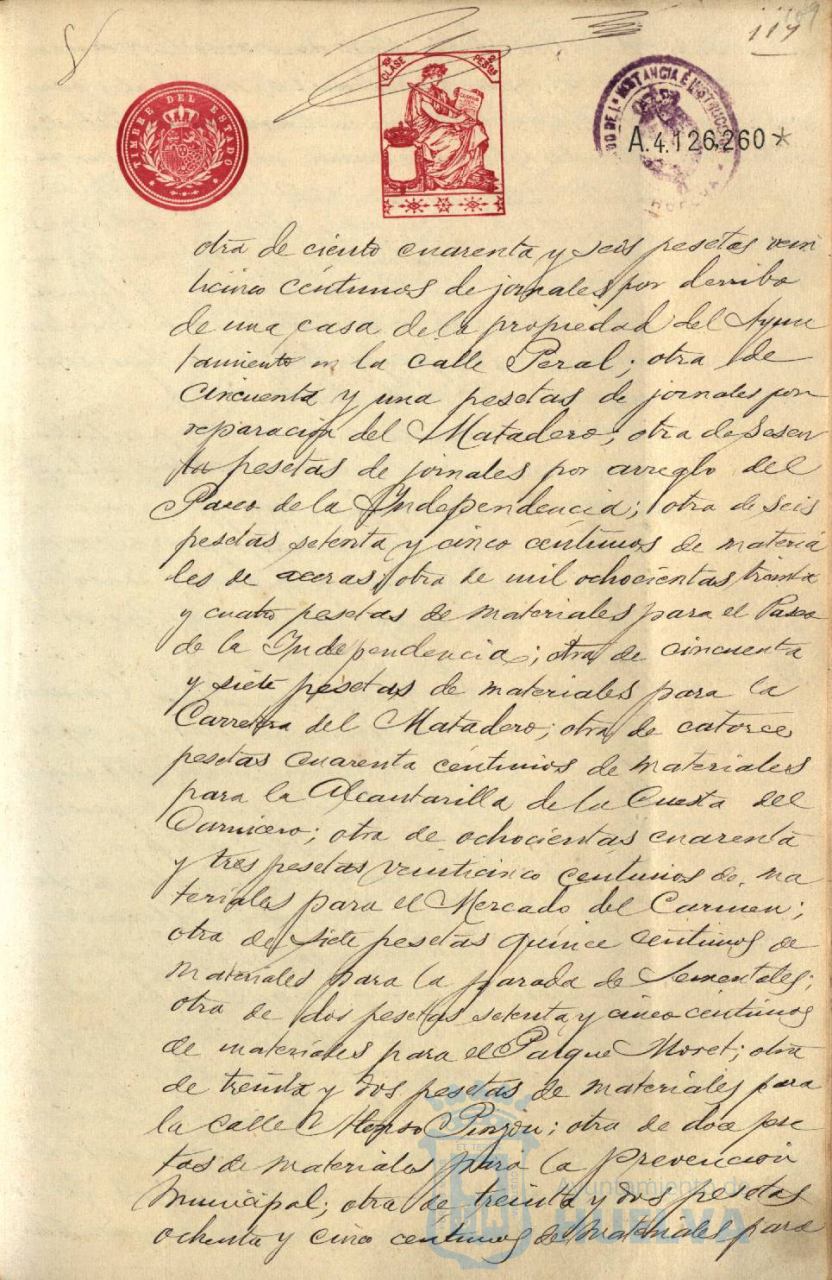 109
117
TIMBRE DEL ESTADO
10ª CLASE 2 PESETAS
JUZGADO DE 1ª INSTANCIA É INSTRUCCION
HUELVA
A.4.126,260 *
otra de ciento cuarenta y seis pesetas vein
ticinco céntimos de jornales por derribo
de una casa de la propiedad del Ayun
tamiento en la calle Peral; otra de
cincuenta y una pesetas de jornales por
reparación del Matadero; otra de sesen
ta pesetas de jornales por arreglo del
Paseo de la Independencia; otra de seis
pesetas setenta y cinco céntimos de materia
les de aceras, otra de mil ochocientas treinta
y cuatro pesetas de materiales para el Paseo
de la Independencia; otra de cincuenta
y siete pesetas de materiales para la
Carretera del Matadero; otra de catorce
pesetas cuarenta céntimos de materiales
para la Alcantarilla de la Cuesta del
Carnicero; otra de ochocientas cuarenta
y tres pesetas veinticinco centimos de ma
teriales para el Mercado del Carmen;
otra de siete pesetas quince centimos de
materiales para la parada de Sementales;
otra de dos pesetas setenta y cinco centimos
de materiales para el Parque Moret; otra
de treinta y dos pesetas de materiales para
la calle Alonso Pinzon; otra de doce pese
tas de materiales para la Prevención
Municipal; otra de treinta y dos pesetas
ochenta y cinco centimos de materiales para
Ayuntamiento de
HUELVA